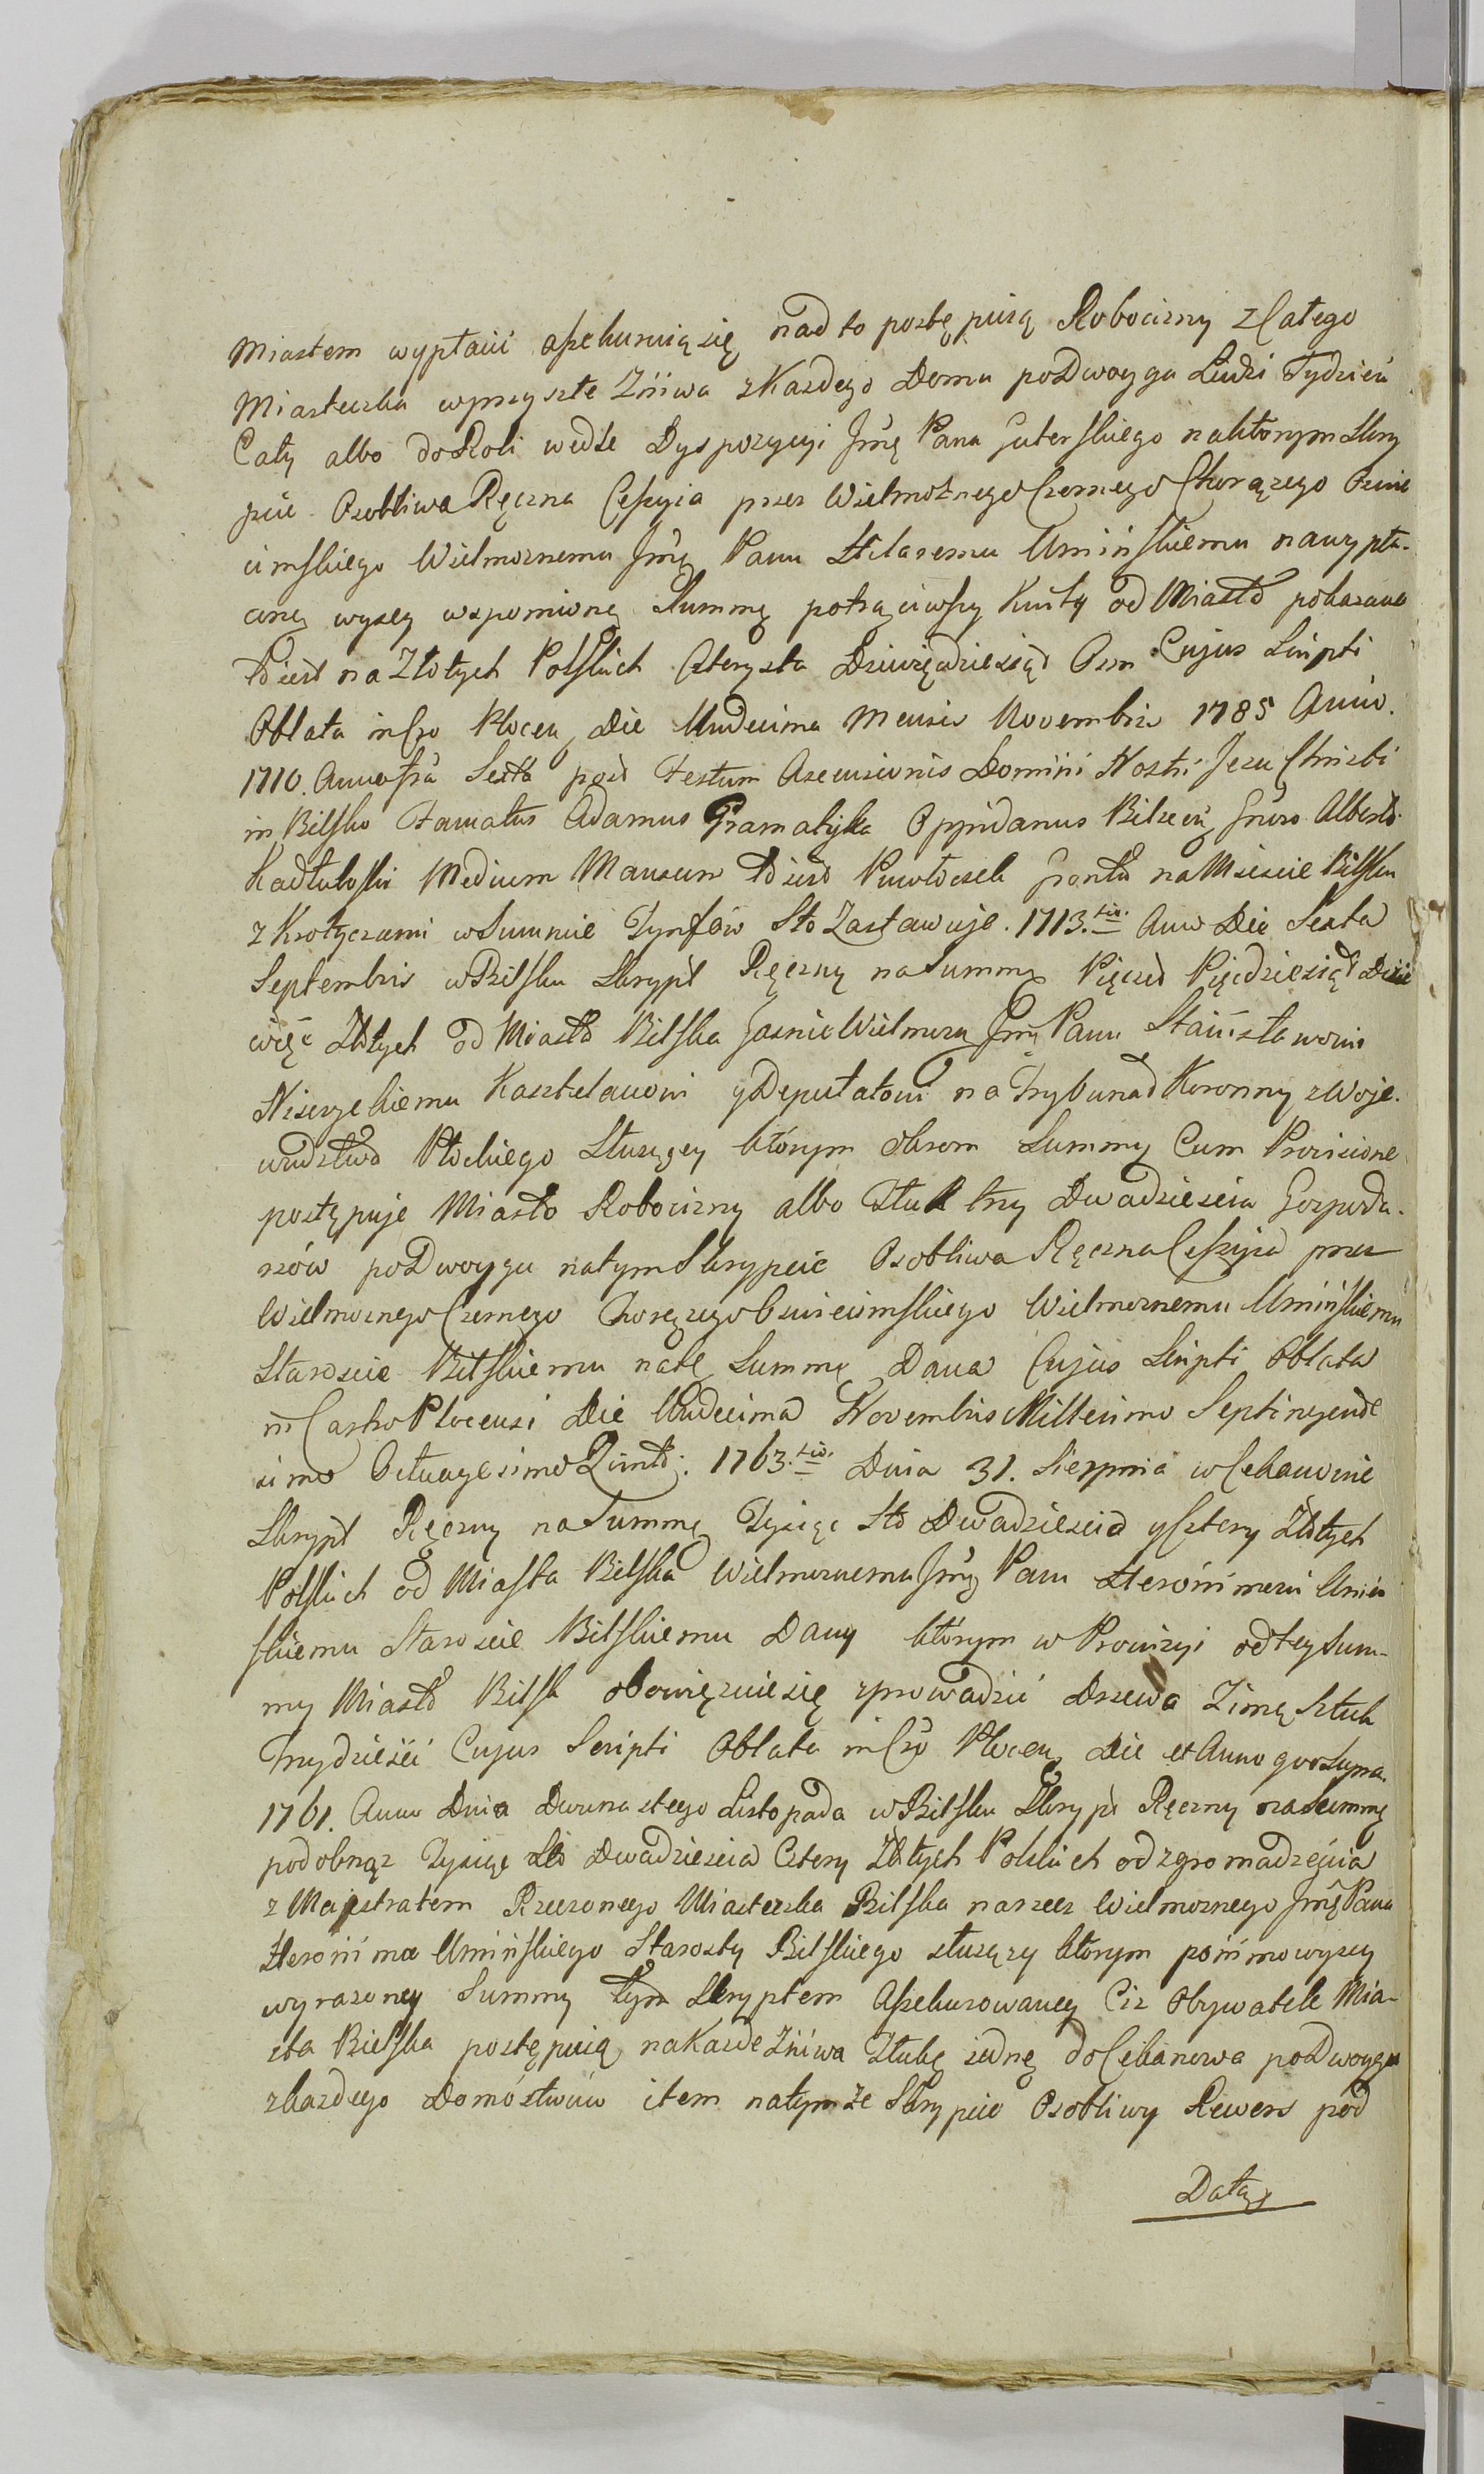 Miastem wypłacić assekuruią się nad to postępuią Robocizny z Całego
Miasteczka w przyszłe Zniwa z Kazdego Domu po Dwoyga Ludzi Tydzień
Cały albo do Roli wedle Dyspozycyi Jmę Pana Guterskiego na którym Skry
pcie Osobliwa Ręczna Cessyia przez Wielmożnego Czernego Chorązego Oswie
cimskiego Wielmoznemu Jmę Panu Hilaremu Uminskiemu na wypła-
coną wyzey wspomnioną Summę potrąciwszy Kwity od Miasta pokazane
to iest na Złotych Polskich Czterysta Dziewięćdziesiąt Osm Cujus Scripti
Oblata in Cro Plocen, Die Undecima Mensis Novembris 1785 Anno.
1710. Anno fra Sexta post Festum Ascensionis Domini Nostri Jesu Christi
in Bilsko Famatus Adamus Gramatyka Oppidanus Bilscen, Gnoso Alberto
Kadłuboski Medium Mansum to iest Pułwłoczek Gruntu na Miescie Bilsku
z Krotyczami w Summie Tynfów Sto Zastawuje. 1713.tio Anno Die Sexta
Septembris w Bilsku Skrypt Ręczny na Summę Pięcset Pięcdziesiąt Dzie
więć Złotych od Miasta Bilska Jasnie Wielmozn, Jmę Panu Stanisławowi
Niszczyckiemu Kasztelanowi y Deputatowi na Trybunał Koronny z Woje-
wudztwa Płockiego Służący którym obrom Summy Cum Provisione
postępuje Miasto Robocizny albo Tłuk trzy Dwadziescia Gospoda-
rzów po Dwoyga na tym Skrypcie Osobliwa Ręczna Cessyia przez
Wielmoznego Czernego Chorązego Oswiecimskiego Wielmoznemu Uminskiemu
Staroscie Bilskiemu na tę Summę Dana Cujus Scripti Oblata
in Castro Plocensi Die Undecima Novembris Millesimo Septingente
simo Octuagesimo Quinto. 1763.tio Dnia 31. Sierpnia w Cekanowie
Skrypt Ręczny na Summę Tysiąc Sto Dwadziescia y Cztery Złotych
Polskich od Miasta Bilska Wielmoznemu Jmę Panu Hieronimowi Umin
skiemu Staroscie Bilskiemu Dany którym w Prowizyi od tey Sum-
my Miasto Bilsk obowięzuie się zprowadzić Drzewa Zimą Sztuk
Trzydzieści Cujus Scripti Oblata in Cro Plocen, Die et Anno quo Supra.
1761. Anno Dnia Dwunastego Listopada w Bilsku Skrypt Ręczny na Summę
podobnąz Tysiąc Sto Dwadziescia Cztery Złotych Polskich od zgromadzenia
z Majestratem Rzeczonego Miasteczka Bilska na rzecz Wielmoznego Jmę Pana
Hieronima Uminskiego Starosty Bilskiego służący którym pomimo wyzey
wyrazoney Summy tym Skryptem Assekurowaney Ciz Obywatele Mia-
sta Bielska postępuią na Kazde Zniwa Tłukę iednę do Cekanowa po Dwoyga
z kazdego Domostwów item na tymze Skrypcie Osobliwy Rewers pod
Datą